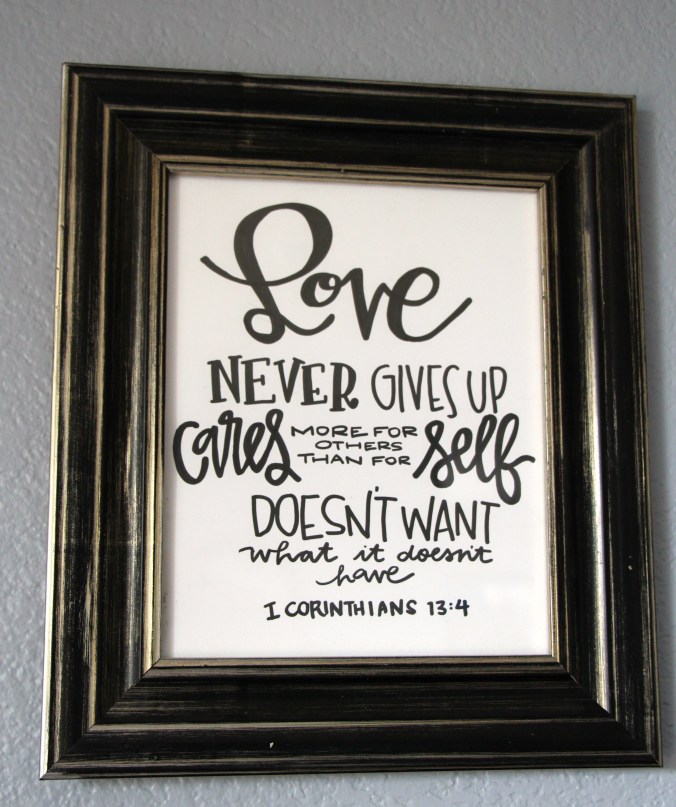 Love
NEVER GIVES UP
cares MORE FOR OTHERS THAN FOR self
DOESN'T WANT
what it doesn't
have
I CORINTHIANS 13:4